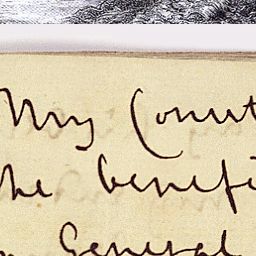 My Comit
the benefi
General